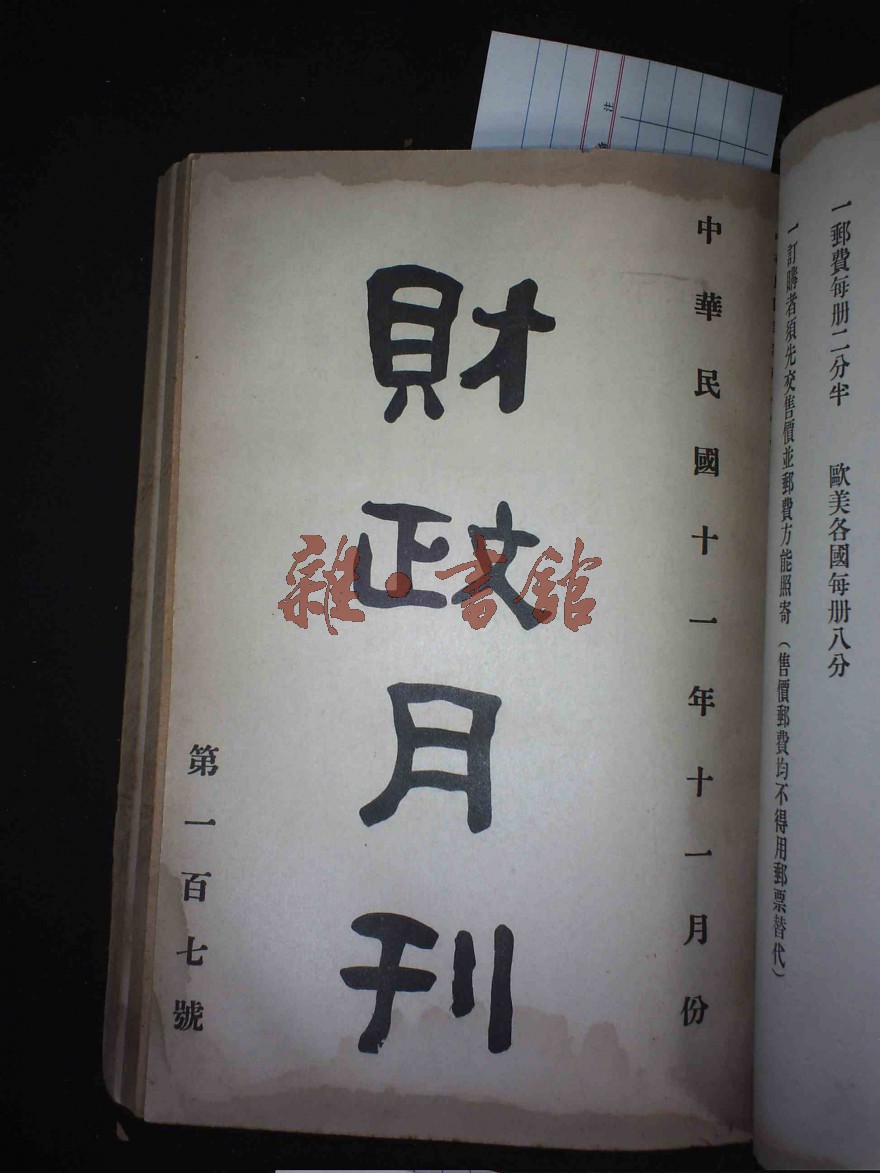 一郵費每册二分半　歐美各國每册八分
一訂購者須先交售價並郵費方能照寄（售價郵費均不得用郵票替代）
中華民國十一年十一月份
財政月刊
第一百七號
雜·書館